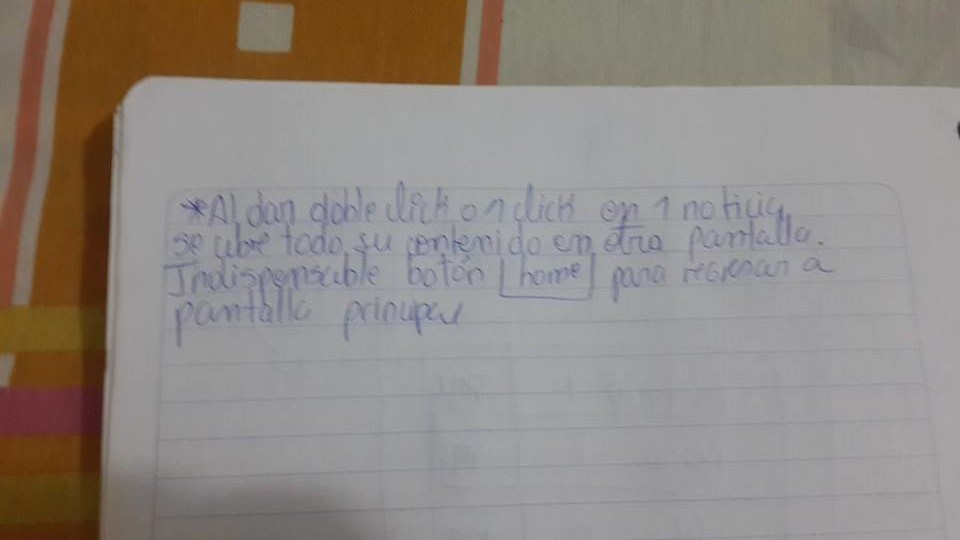 *Al dar doble click o 1 click en 1 noticia
se abre todo su contenido en otra pantalla.
Indispensable botón home para regresar a
pantalla principal